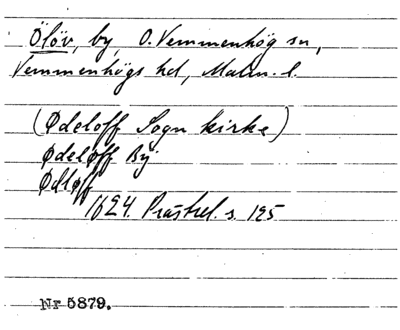 Ölöv, by, Ö. Vemmenhög sn,
Vemmenhögs hd, Malm. l.
(Ødeloff Sogn kirke)
Ødeløff By
Ødløff
1624. Prästrel. s. 195
Nr 5879.